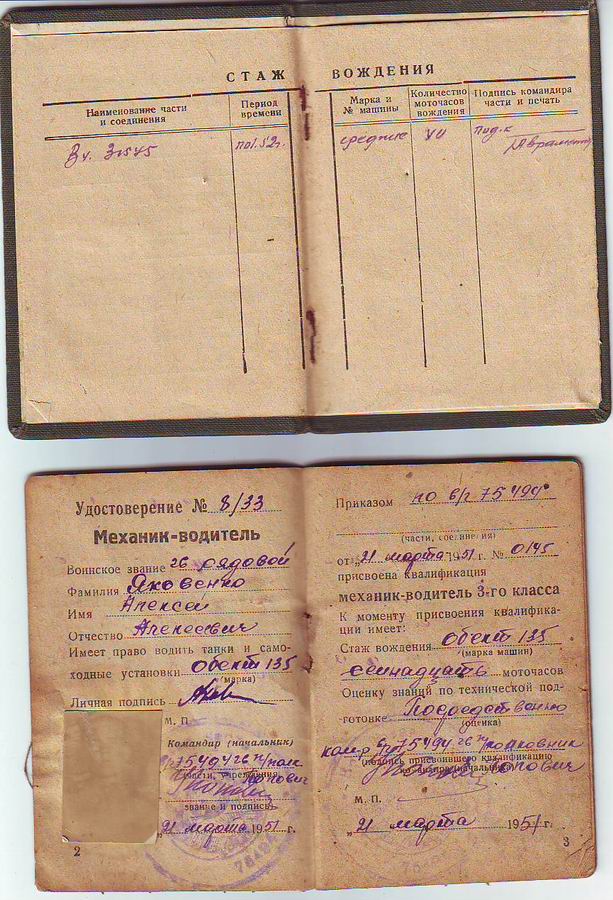 СТАЖ ВОЖДЕНИЯ
Наименование части и соединения
Период времени
Марка и № машины
Количество моточасов вождения
Подпись командира части и печать
средние
Удостоверение № 8/33
Механик-водитель
Воинское звание рядовой
Фамилия Яковенко
Имя Алексей
Отчество Алексеевич
Имеет право водить танки и само-
ходные установки обект 135
(марка)
Личная подпись
М. П.
Командир (начальник)
звание и подпись
„21 марта 1951 г.
2
Приказом по в/ч 75494
(части, соединения)
от „21 марта 1951 г. № 0145
присвоена квалификация
механик-водитель 3-го класса
К моменту присвоения квалифика-
ции имеет:
Стаж вождения обект 135
(марка машин)
семнадцать моточасов
Оценку знаний по технической под-
готовке Посредственно
(оценка)
полковник
Попович
М. П.
„21 марта 1951 г.
3